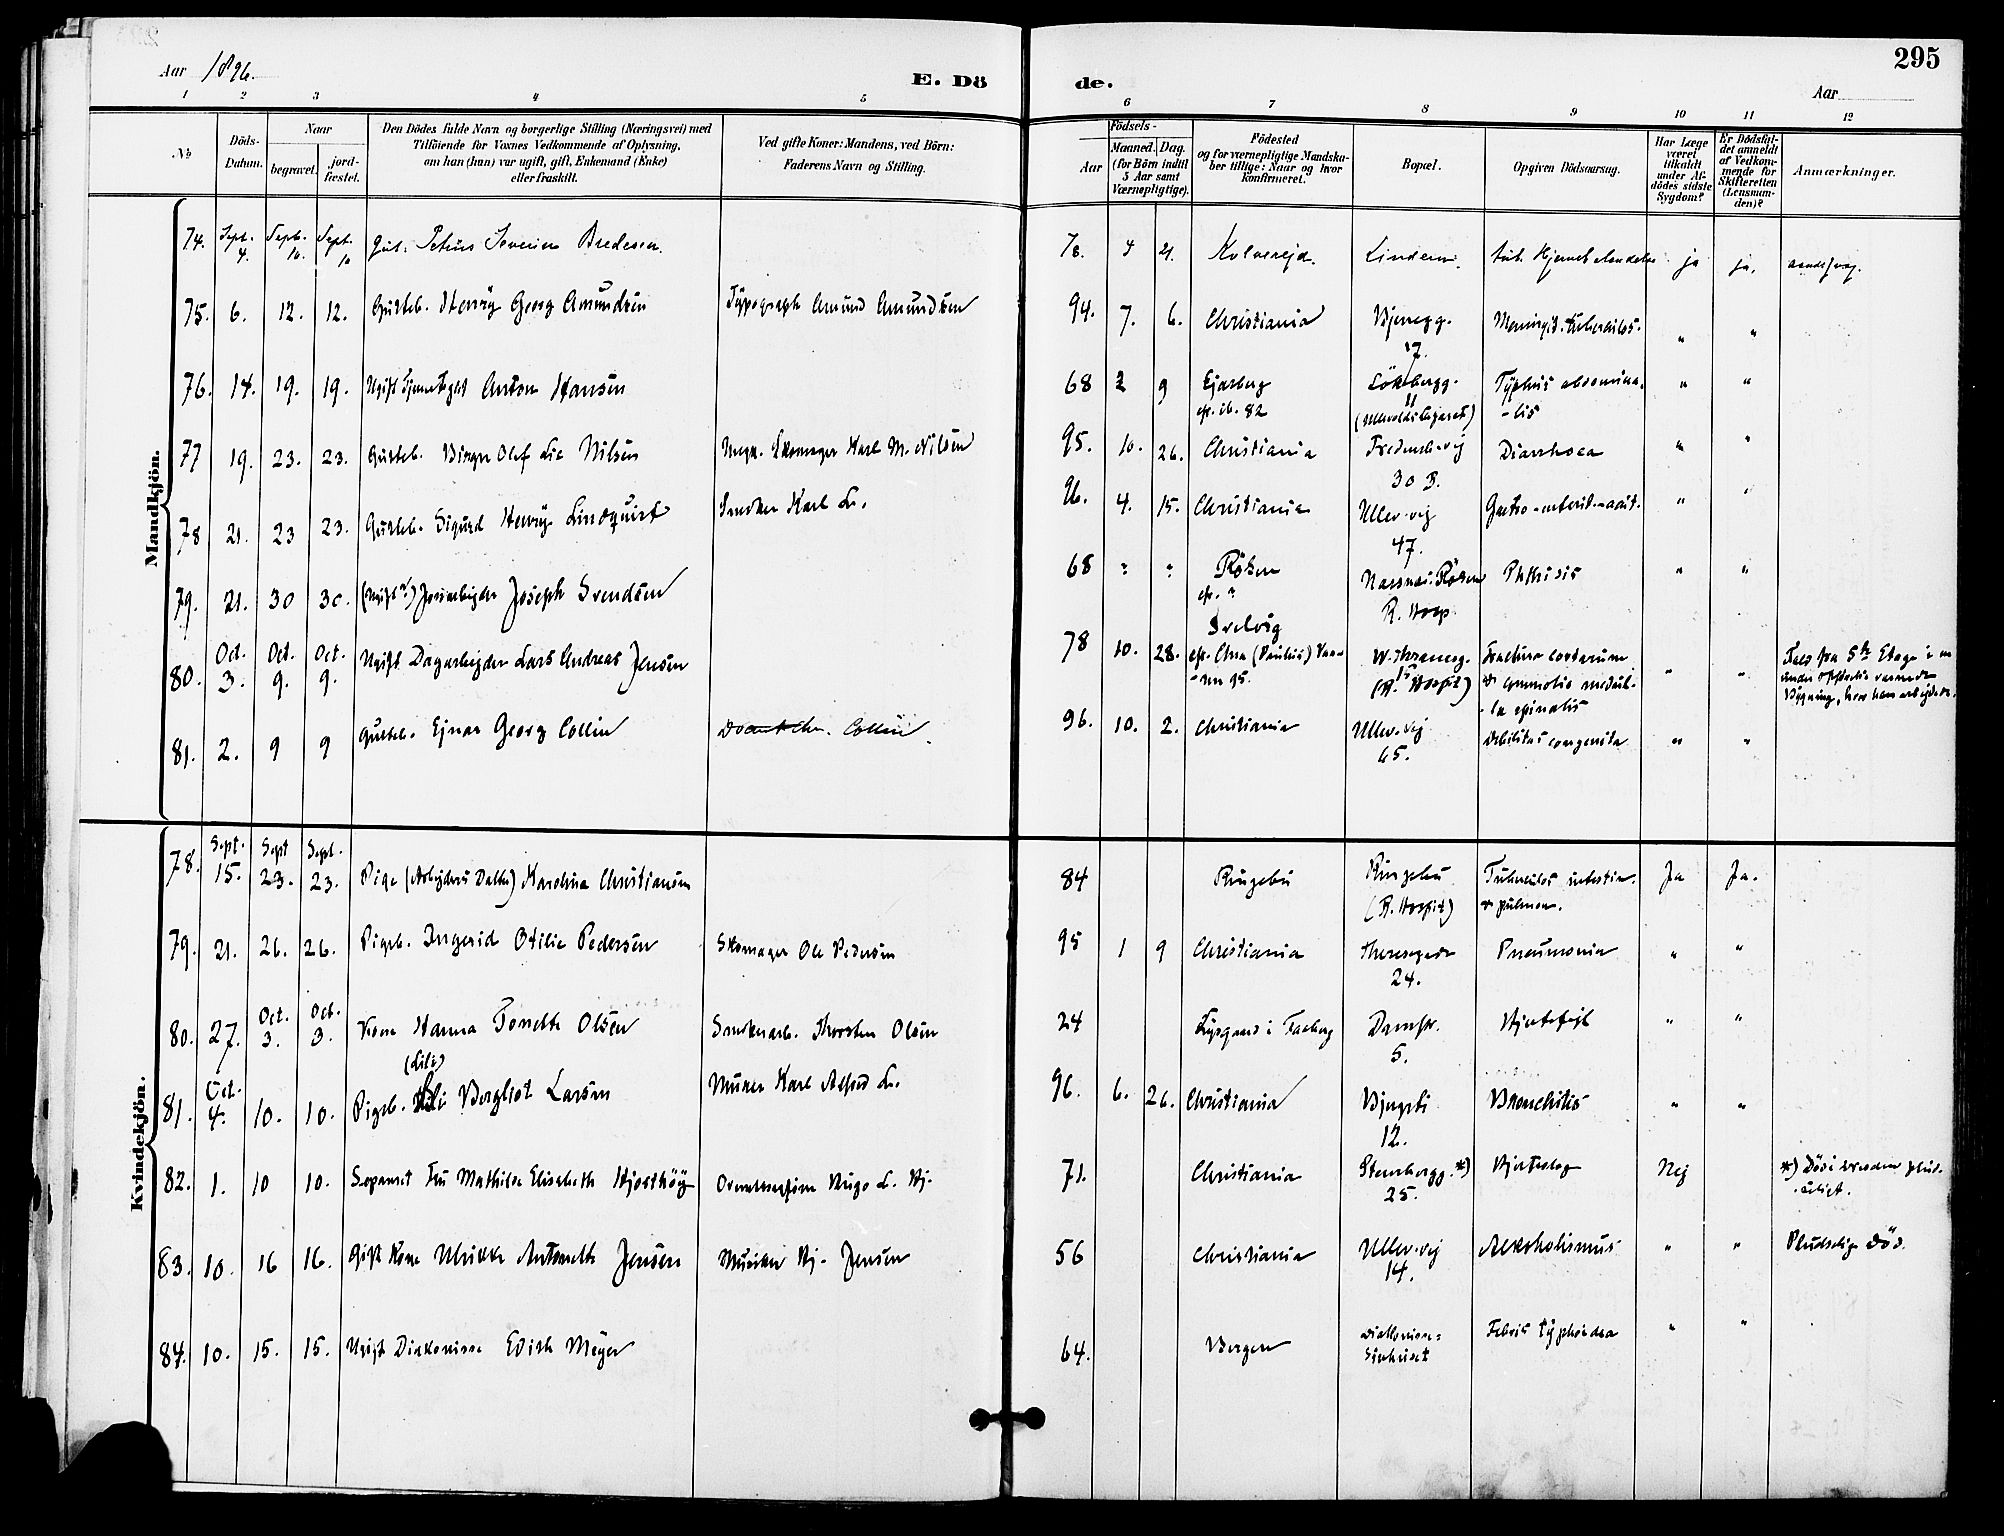 295
Aar 1896.
E. Dö de.
Aar
1 2 3 4 5 6 7 8 9 10 11 12
No
Döds-Datum.
Naar
begravet.
jord-fæstet.
Den Dödes fulde Navn og borgerlige Stilling (Næringsvei) med
Tilföiende for Voxnes Vedkommende af Oplysning,
om han (hun) var ugift, gift, Enkemand (Enke)
eller fraskilt.
Ved gifte Koner: Mandens, ved Börn:
Faderens Navn og Stilling.
Födsels-
Aar
Maaned. Dag.
(for Börn indtil
5 Aar samt
Værnepligtige).
Födested
og for værnepligtige Mandska-
ber tillige: Naar og hvor
konfirmeret.
Bopæl.
Opgiven Dödsaarsag.
Har Læge
været
tilkaldt
under Af-
dödes sidste
Sygdom?
Er Dödsfal-
det anmeldt
af Vedkom-
mende for
Skifteretten
(Lensman-
den)?
Anmærkninger.
Mandkjön.
74. Sept. 4. Sept. 10. Sept. 10 Gut. Petrus Severin Bredesen. 78. 4 21. Kolvereid. Lindern. ja ja, aandssvag.
75. 6. 12. 12. Gutteb. Henry Georg Amundsen Typograph Amund Amundsen 94. 7. 6. Christiania Bjeregg. 17. Meningit. tuberculos. " "
76. 14. 19. 19. Ugift Anton Hansen 68 2 9 Ejdsberg cf. ib. 82 11 (Ullevolds Lazaret) Typhus abdomina-
-lis " "
77 19. 23. 23. Gutteb. Birger Olaf Lie Nilsen Skomager Karl M. Nilsen 95. 10. 26. Christiania 30 B. Diarrhoea " "
78 21. 23 23. Gutteb. Sigurd Henry Lindquist Snedker Karl L. 96. 4. 15. Christiania Ullev.vej 47. Gastro-enterit. acut. " "
79. 21. 30 30. (Ugift?) Joseph Svendsen 68 " " Röken cf. ? Röken R. Hosp. Phthisis " "
80. Oct. 3. Oct. 9. Oct. 9. Ugift Dagarbejder Lars Andreas Jensen 78 10. 28. Svelvig 95. W. Thranesg. 15 (R. Hospit) Fractura costarum
& commotio medul-
-la spinalis " " Faldt fra 5te Etage i en
under Opförelse værende
Bygning, hvor han arbejdede.
81. 2. 9 9 Gutteb. Ejnar Georg Collin Collin. 96. 10. 2. Christiania Ullev.vej 65. Debilitas congenita " "
Kvindekjön.
78. Sept. 15. Sept 23. Sept. 23. Pige (Arbejders Datter) Karolina Christiansen 84 Ringebu Ringebu (R. Hospit) Tuberculos intestin.
& pulmon. Ja Ja.
79. 21. 26. 26. Pigeb. Ingerid Otilie Pedersen Skomager Ole Pedersen 95 1 9 Christiania Theresegade 24. Pneumonia " "
80. 27. Oct. 3. Oct. 3. Kone Hanna Tonette Olsen Snedkerarb. Thorsten Olsen 24 Lysgaard i Faaberg Damstr. 5. Hjertefejl " "
81. Oct. 4. 10. 10. Pigeb. (Lilli) Bergliot Larsen Murer Karl Alfred L. 96. 6. 26. Christiania Bjergsti 12. Bronchitis " "
82. 1. 10 10. Separeret Fru Mathilde Elisabeth Hjorthöy Hugo L. Hj. 71. Christiania Stensbergg. *) 25. Hjerteslag Nej *) Död i
83. 10. 16 16. Gift Kone Ulrikke Antonette Jensen Musiker Hj. Jensen 56 Christiania Ullev.vej 14. Alkoholismus " " Pludselig Död.
84. 10. 15. 15. Ugift Diakonisse Edith Meyer 64. Bergen Diakonisse-
Sygehuset Febris typhoidea " "